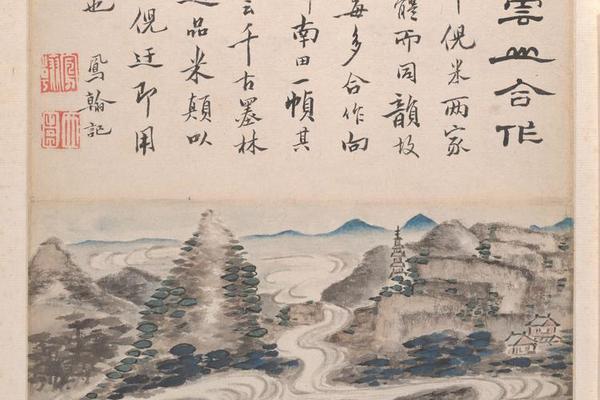 雲山合作
倪米兩家
體而同韻故
每多合作向
南田一幀其
云千古墨林
品米顛以
倪迂即用
也 鳳翰記